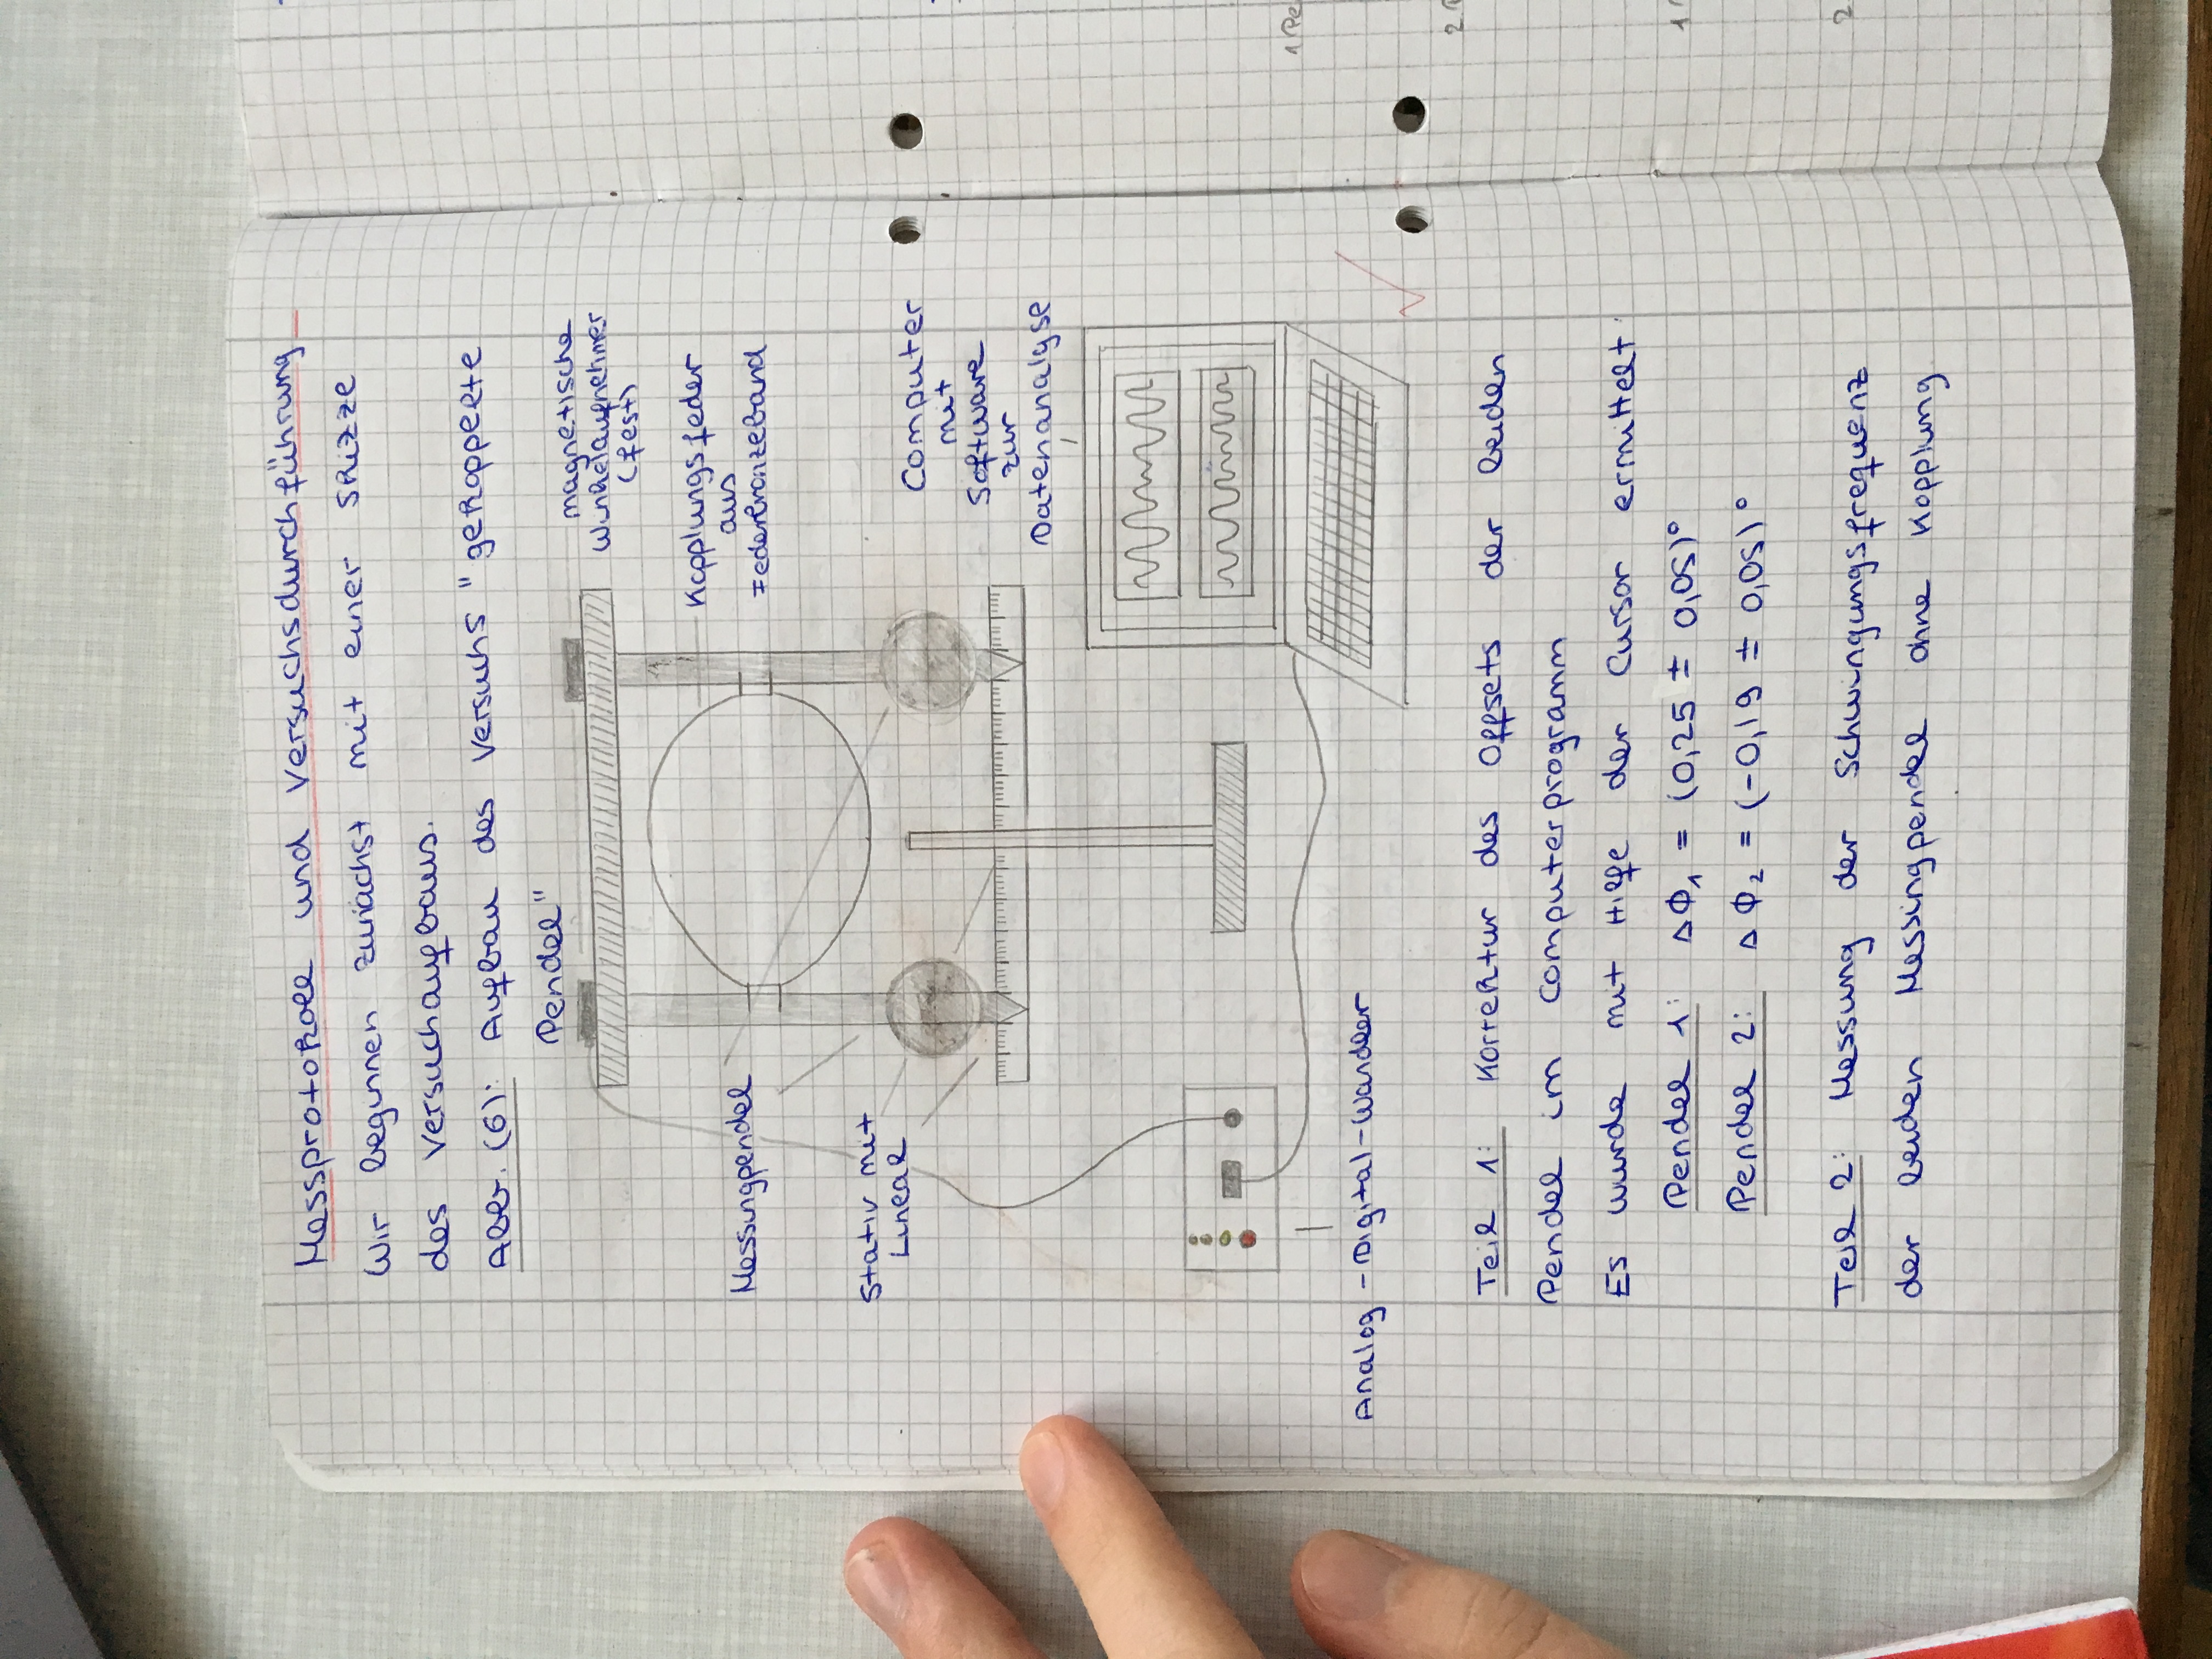 Messprotokoll und Versuchsdurchführung
Wir beginnen zunächst mit einer Skizze
des Versuchaufbaus.
Abb. (6): Aufbau des Versuchs "gekoppelte
Pendel"
magnetische
Winkelaufnehmer
(fest)
Kopplungsfeder
aus
Federbronzeband
Messingpendel
Stativ mit
Lineal
Computer
mit
Software
zur
Datenanalyse
Analog-Digital-Wandler
Teil 1: Korrektur des Offsets der beiden
Pendel im Computerprogramm
Es wurde mit Hilfe der Cursor ermittelt:
Pendel 1: ΔΦ₁ = (0,25 ± 0,05)°
Pendel 2: ΔΦ₂ = (-0,19 ± 0,05)°
Teil 2: Messung der Schwingungsfrequenz
der beiden Messingpendel ohne Kopplung
1 Pe
2 P
1
2